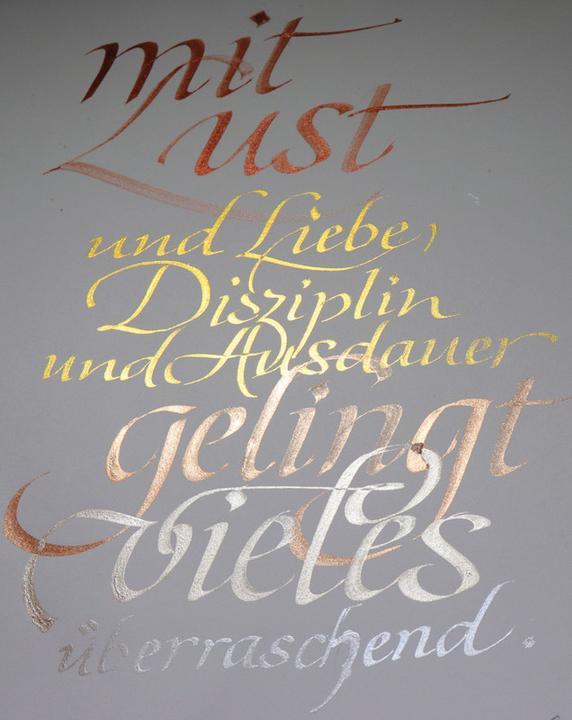 mit
Lust
und Liebe,
Disziplin
und Ausdauer
gelingt
vieles
überraschend.